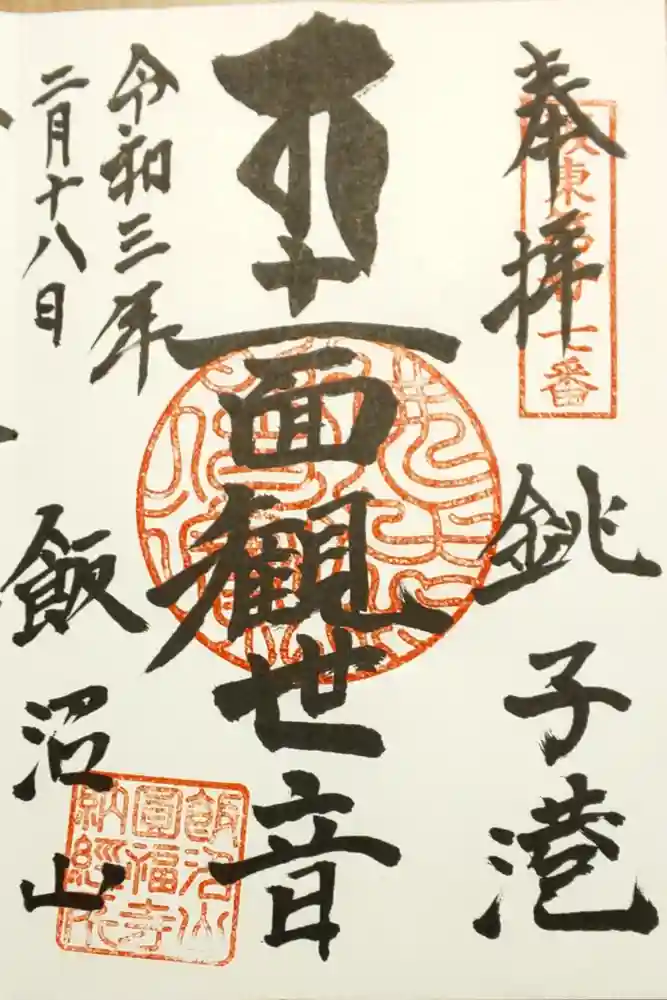 奉拝
坂東第廿七番
銚子港
十一面観世音
令和三年
二月十八日
飯沼山
飯沼山
圓福寺
納經所